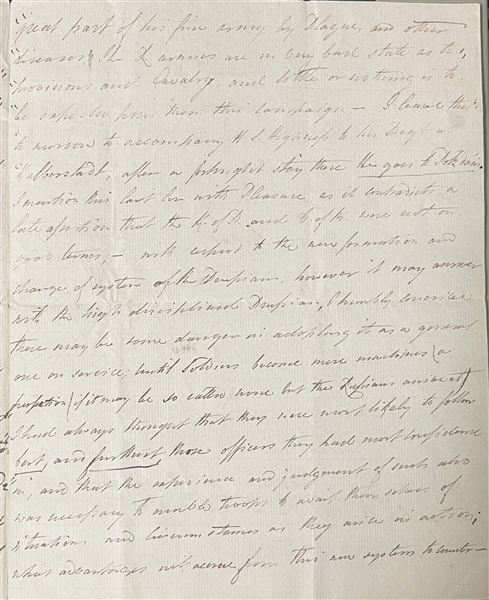 "great part of his fine army by Plague, and other
"diseases" the 2 armies are in very bad state as to
"provisions and Cavalry, and little or nothing is to
"be expected from them this campaign — I leave this
to morrow to accompany H S Highness to his Regt at
Halberstadt, after a fortnight stay there He goes to
I mention this last Cir with Pleasure as it contradicts a
late assertion that the K. of P. and D. of B. were not on
good terms, — with respect to the new formation and
change of system of the Prussians, however it may answer
with the high disciplined Prussian, I humbly conceive
there may be some danger in adopting it as a general
one on service; until Soldiers become mere machines (a
perfection (if it may be so called none but the Prussians arrive at)
I had always thought that they were most likely to follow
best, and furthest those officers they had most confidence
in, and that the experience and judgment of such also
was necessary to enable troops to avail themselves of
situations and circumstances as they arise in action;
what advantages will accrue from this new system to counter-